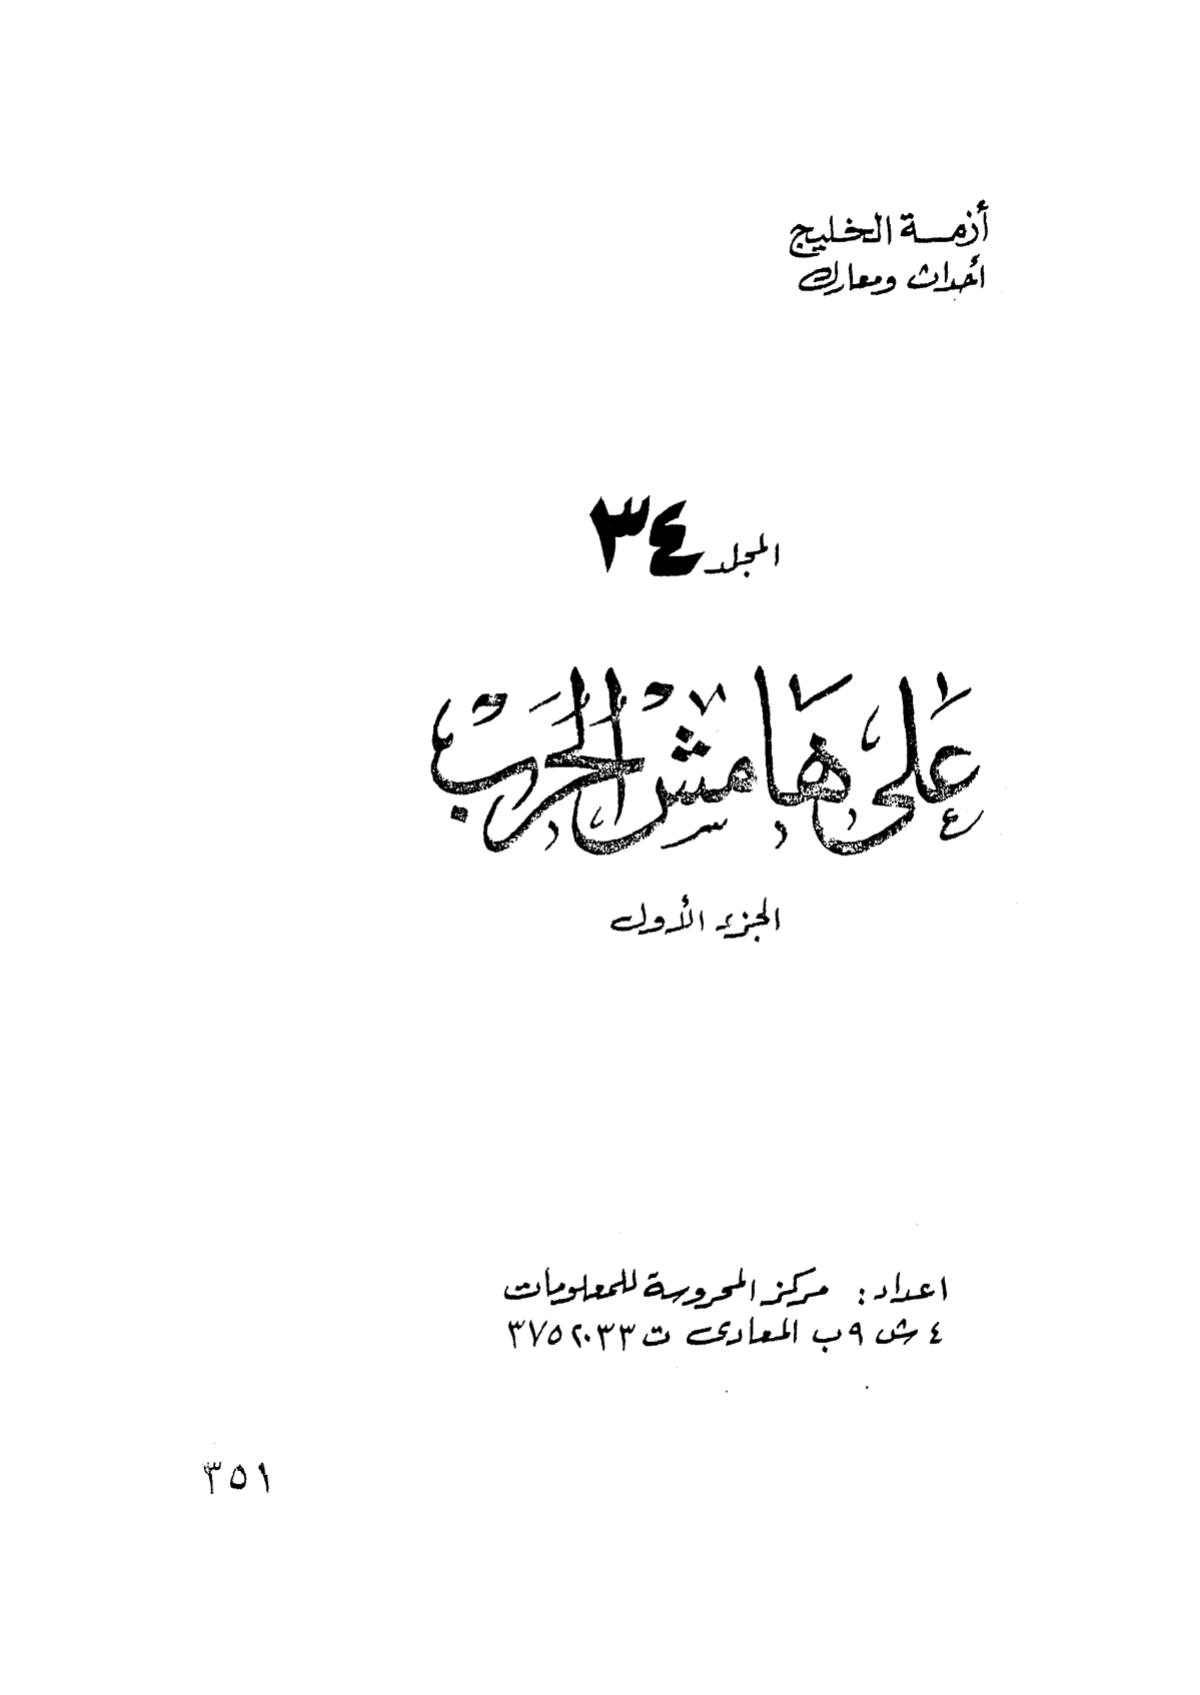 أزمة الخليج
أحداث ومعارك
المجلد ٣٤
على هامش الحرب
الجزء الأول
اعداد: مركز المحروسة للمعلومات
٤ ش ٩ب المعادى ت ٣٧٥٢٠٣٣
٣٥١